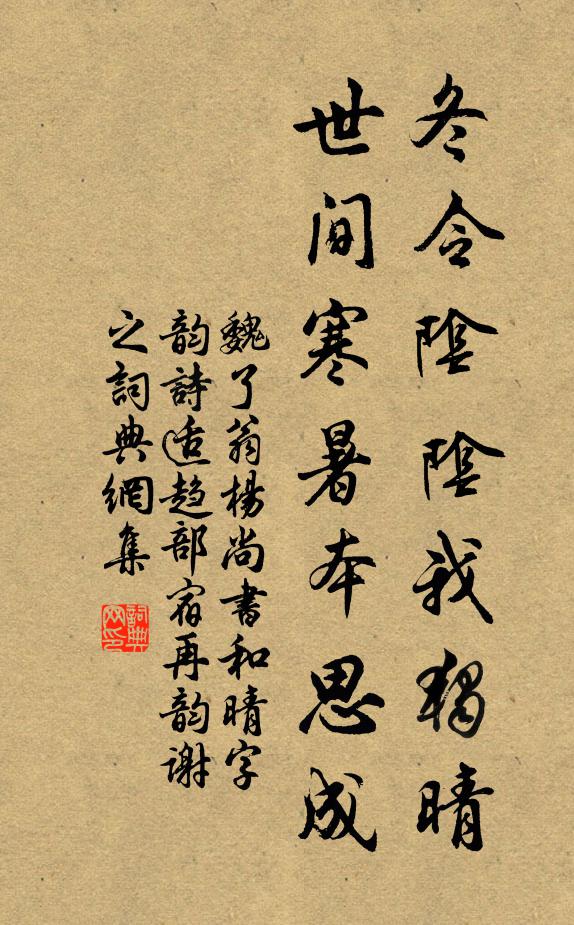 冬令陰陰我獨晴
世間寒暑本思成
魏了翁楊尚書和晴字
韵詩适趋部宿再韵谢
之詞典網集
詞典网印